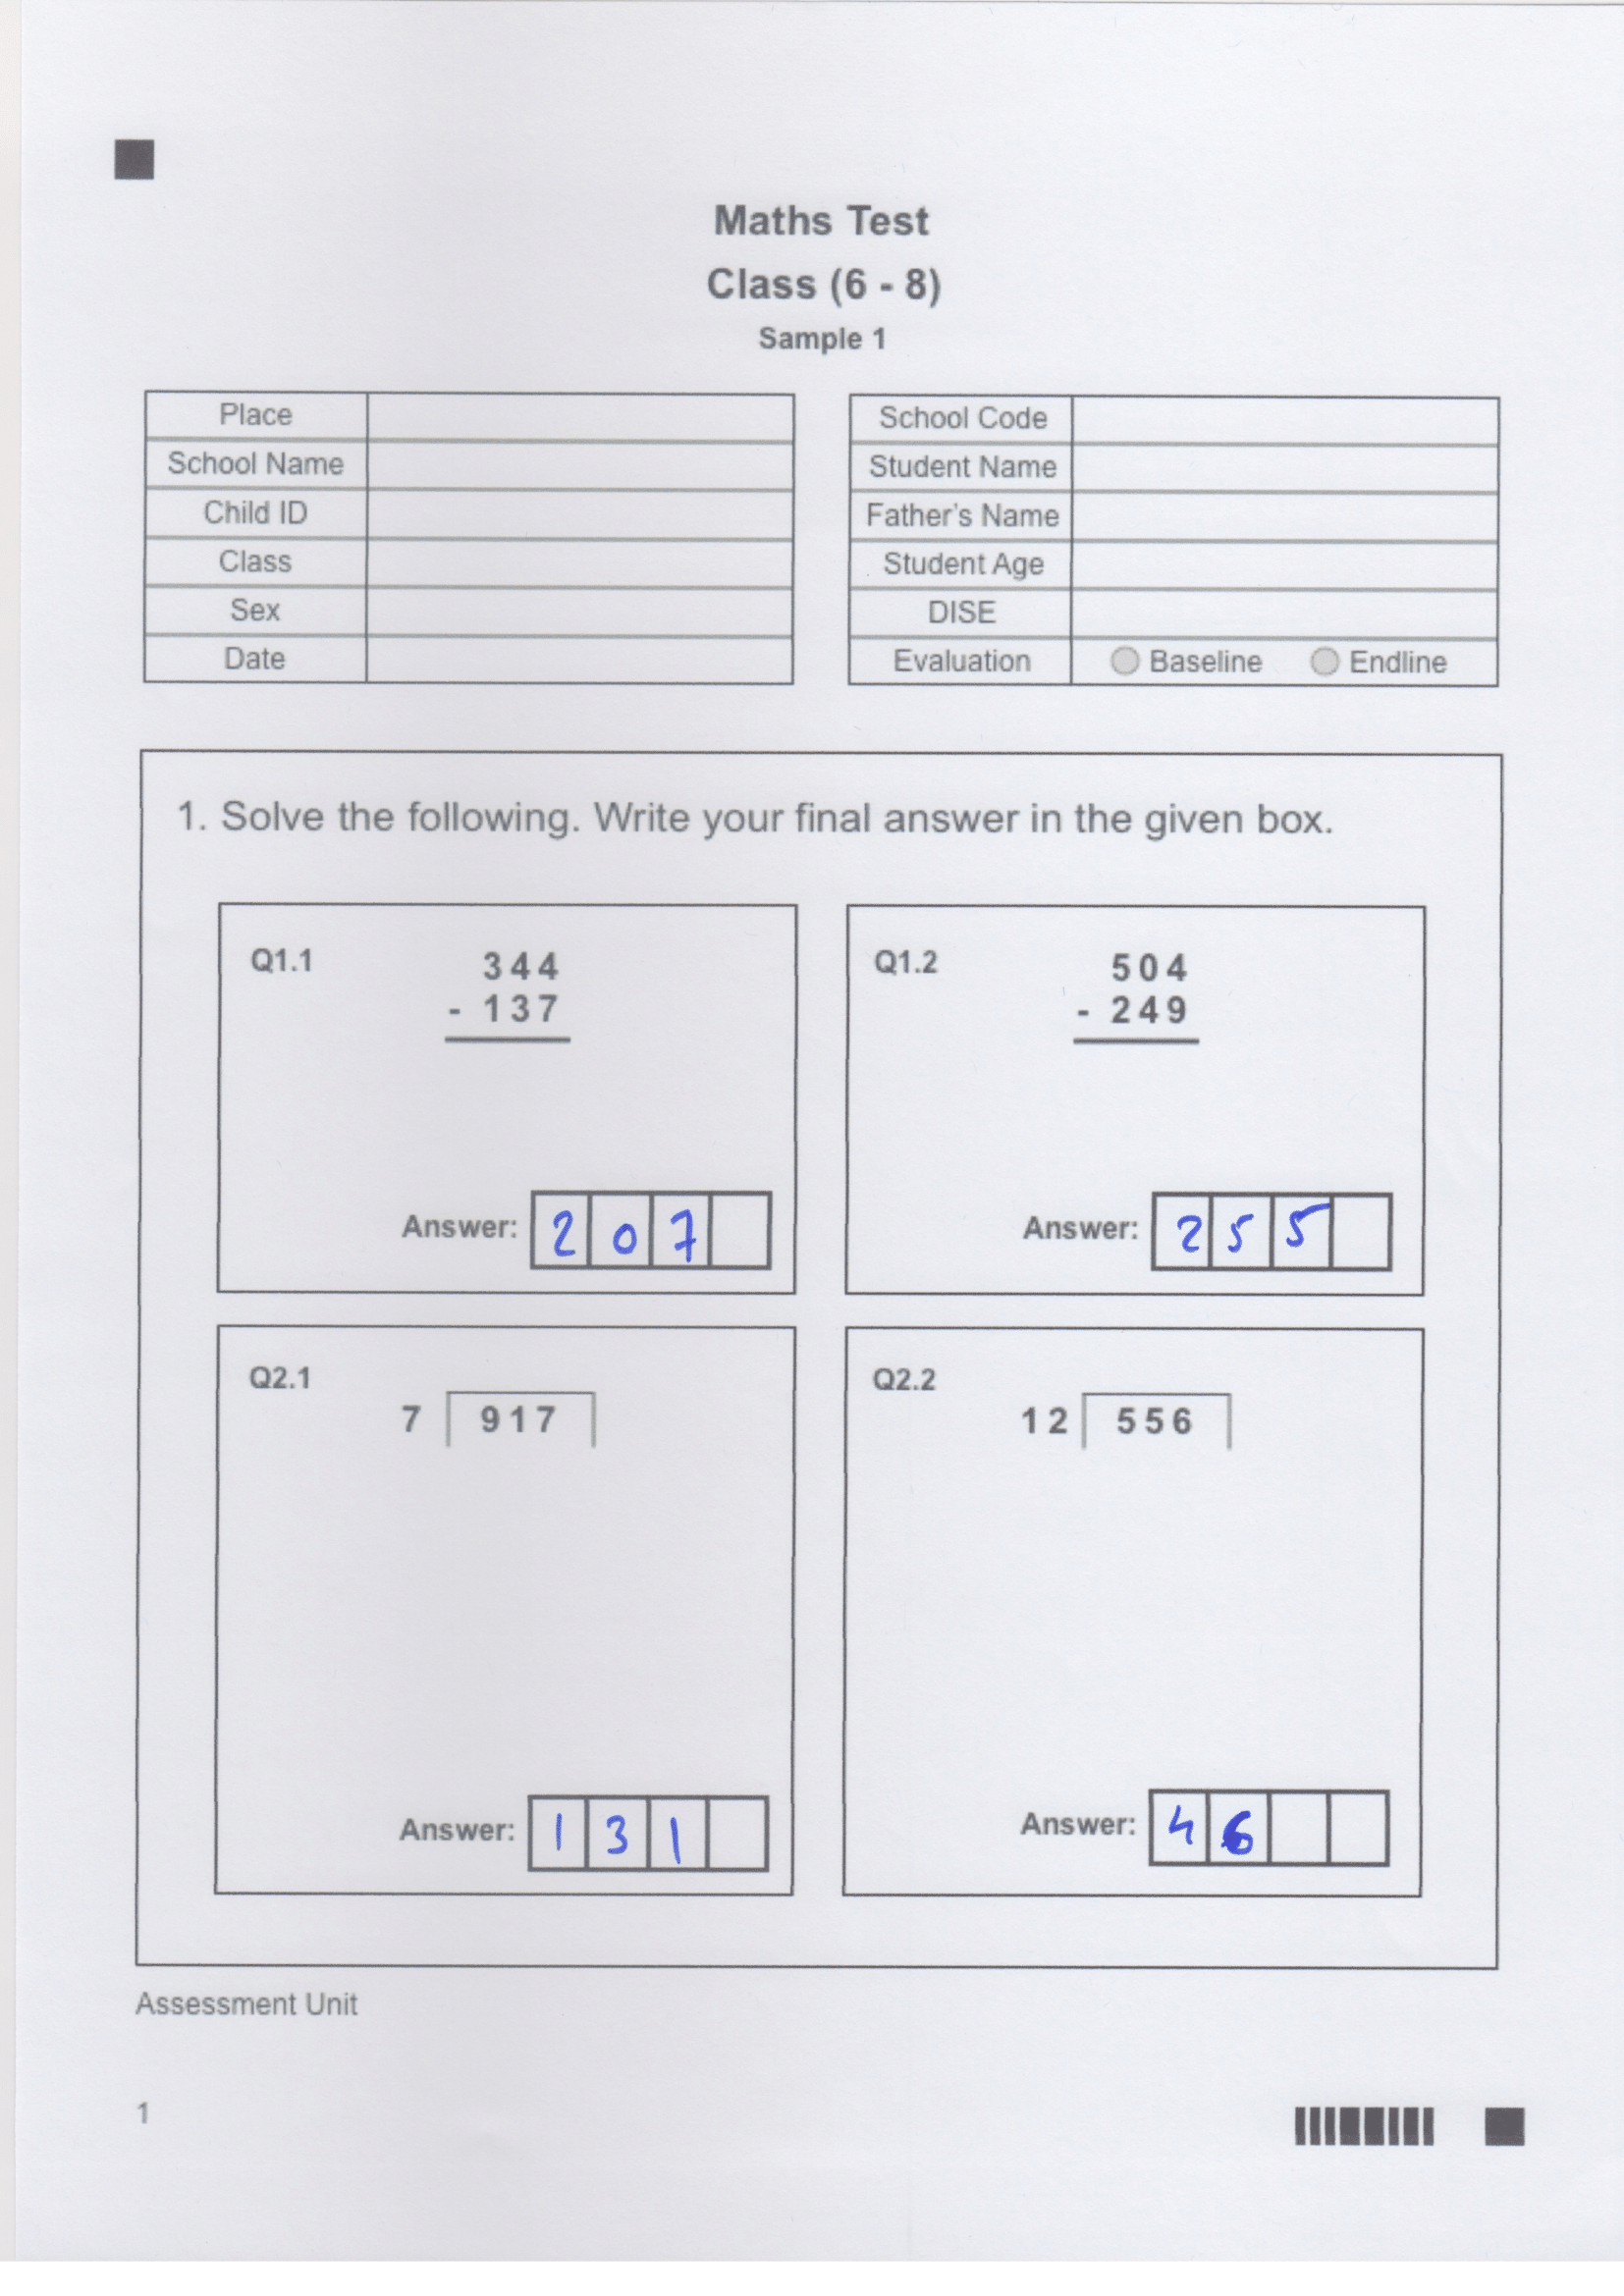 Maths Test
Class (6 - 8)
Sample 1
Place
School Name
Child ID
Class
Sex
Date
School Code
Student Name
Father's Name
Student Age
DISE
Evaluation Baseline Endline
1. Solve the following. Write your final answer in the given box.
Q1.1
344
- 137
Answer: 2 0 7
Q1.2
504
- 249
Answer: 2 5 5
Q2.1
7 917
Answer: 1 3 1
Q2.2
12 556
Answer: 4 6
Assessment Unit
1